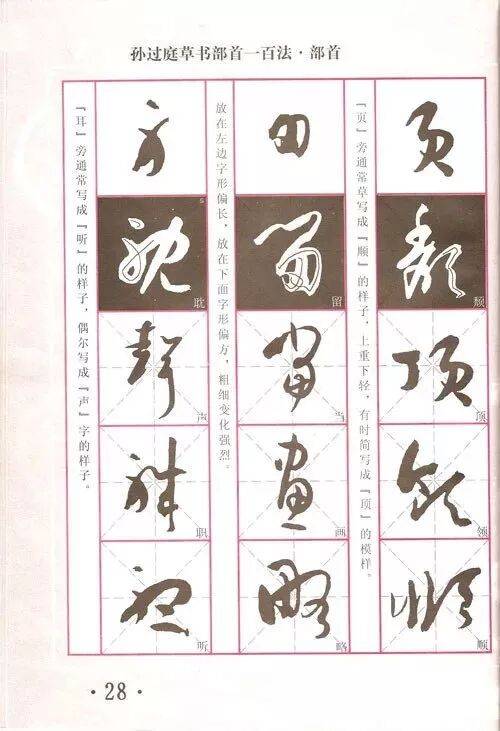 孙过庭草书部首一百法·部首
页
颓
顶
领
顺
『页』旁通常草写成『顺』的样子，上重下轻，有时简写成『顶』的模样。
田
留
当
画
略
放在左边字形偏长，放在下面字形偏方，粗细变化强烈。
耳
耽
声
职
听
『耳』旁通常写成『听』的样子，偶尔写成『声』字的样子。
·28·